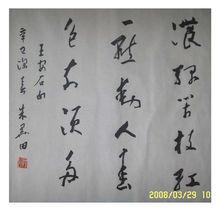 濃绿萬枝紅
一點動人春
色不須多
王安石句
辛巳 春 朱 田
2008/03/29 10